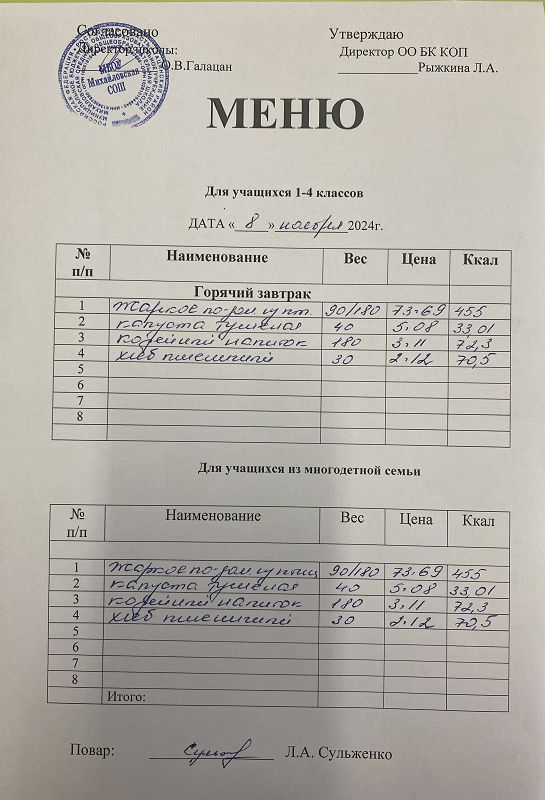 Согласовано Утверждаю
Директор школы: Директор ОО БК КОП
О.В.Галацан Рыжкина Л.А.
МБОУ
Михайловская
СОШ
МЕНЮ
Для учащихся 1-4 классов
ДАТА « 8 » ноября 2024г.
№ п/п Наименование Вес Цена Ккал
Горячий завтрак
1 Жаркое по-дом из пт. 90/180 73.69 455
2 капуста тушеная 40 5.08 33,01
3 кофейный напиток 180 3.11 72,3
4 хлеб пшеничный 30 2.12 70,5
5
6
7
8
Для учащихся из многодетной семьи
№ п/п Наименование Вес Цена Ккал
1 Жаркое по-дом из птиц 90/180 73.69 455
2 капуста тушеная 40 5.08 33,01
3 кофейный напиток 180 3.11 72,3
4 хлеб пшеничный 30 2.12 70,5
5
6
7
8
Итого:
Повар: Л.А. Сульженко